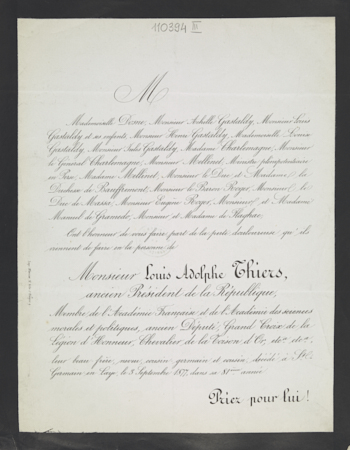 110394 III
M
Mademoiselle Dosne, Monsieur Achille Gastaldy, Monsieur Louis
Gastaldy et ses enfants, Monsieur Henri Gastaldy, Mademoiselle Louise
Gastaldy, Monsieur Jules Gastaldy, Madame Charlemagne, Monsieur
le Général Charlemagne, Monsieur Mellinet, Ministre plénipotentiaire
Madame Mellinet, Monsieur le Duc et Madame la
Duchesse de Bauffremont, Monsieur le Baron Roger, Monsieur le
Duc de Massa, Monsieur Eugène Roger, Monsieur et Madame
Manuel de Gramedo, Monsieur et Madame de
Ont l'honneur de vous faire part de la perte douloureuse qu'ils
viennent de faire en la personne de
Monsieur Louis Adolphe Thiers,
ancien Président de la République,
Membre de l'Académie Française et de l'Académie des sciences
morales et politiques, ancien Député, Grand Croix de la
Légion d'Honneur, Chevalier de la Toison d'Or, etc. etc.
leur beau frère, neveu, cousin germain et cousin, décédé à St
Germain en Laye le 3 Septembre 1877, dans sa 81ème année.
Priez pour lui!